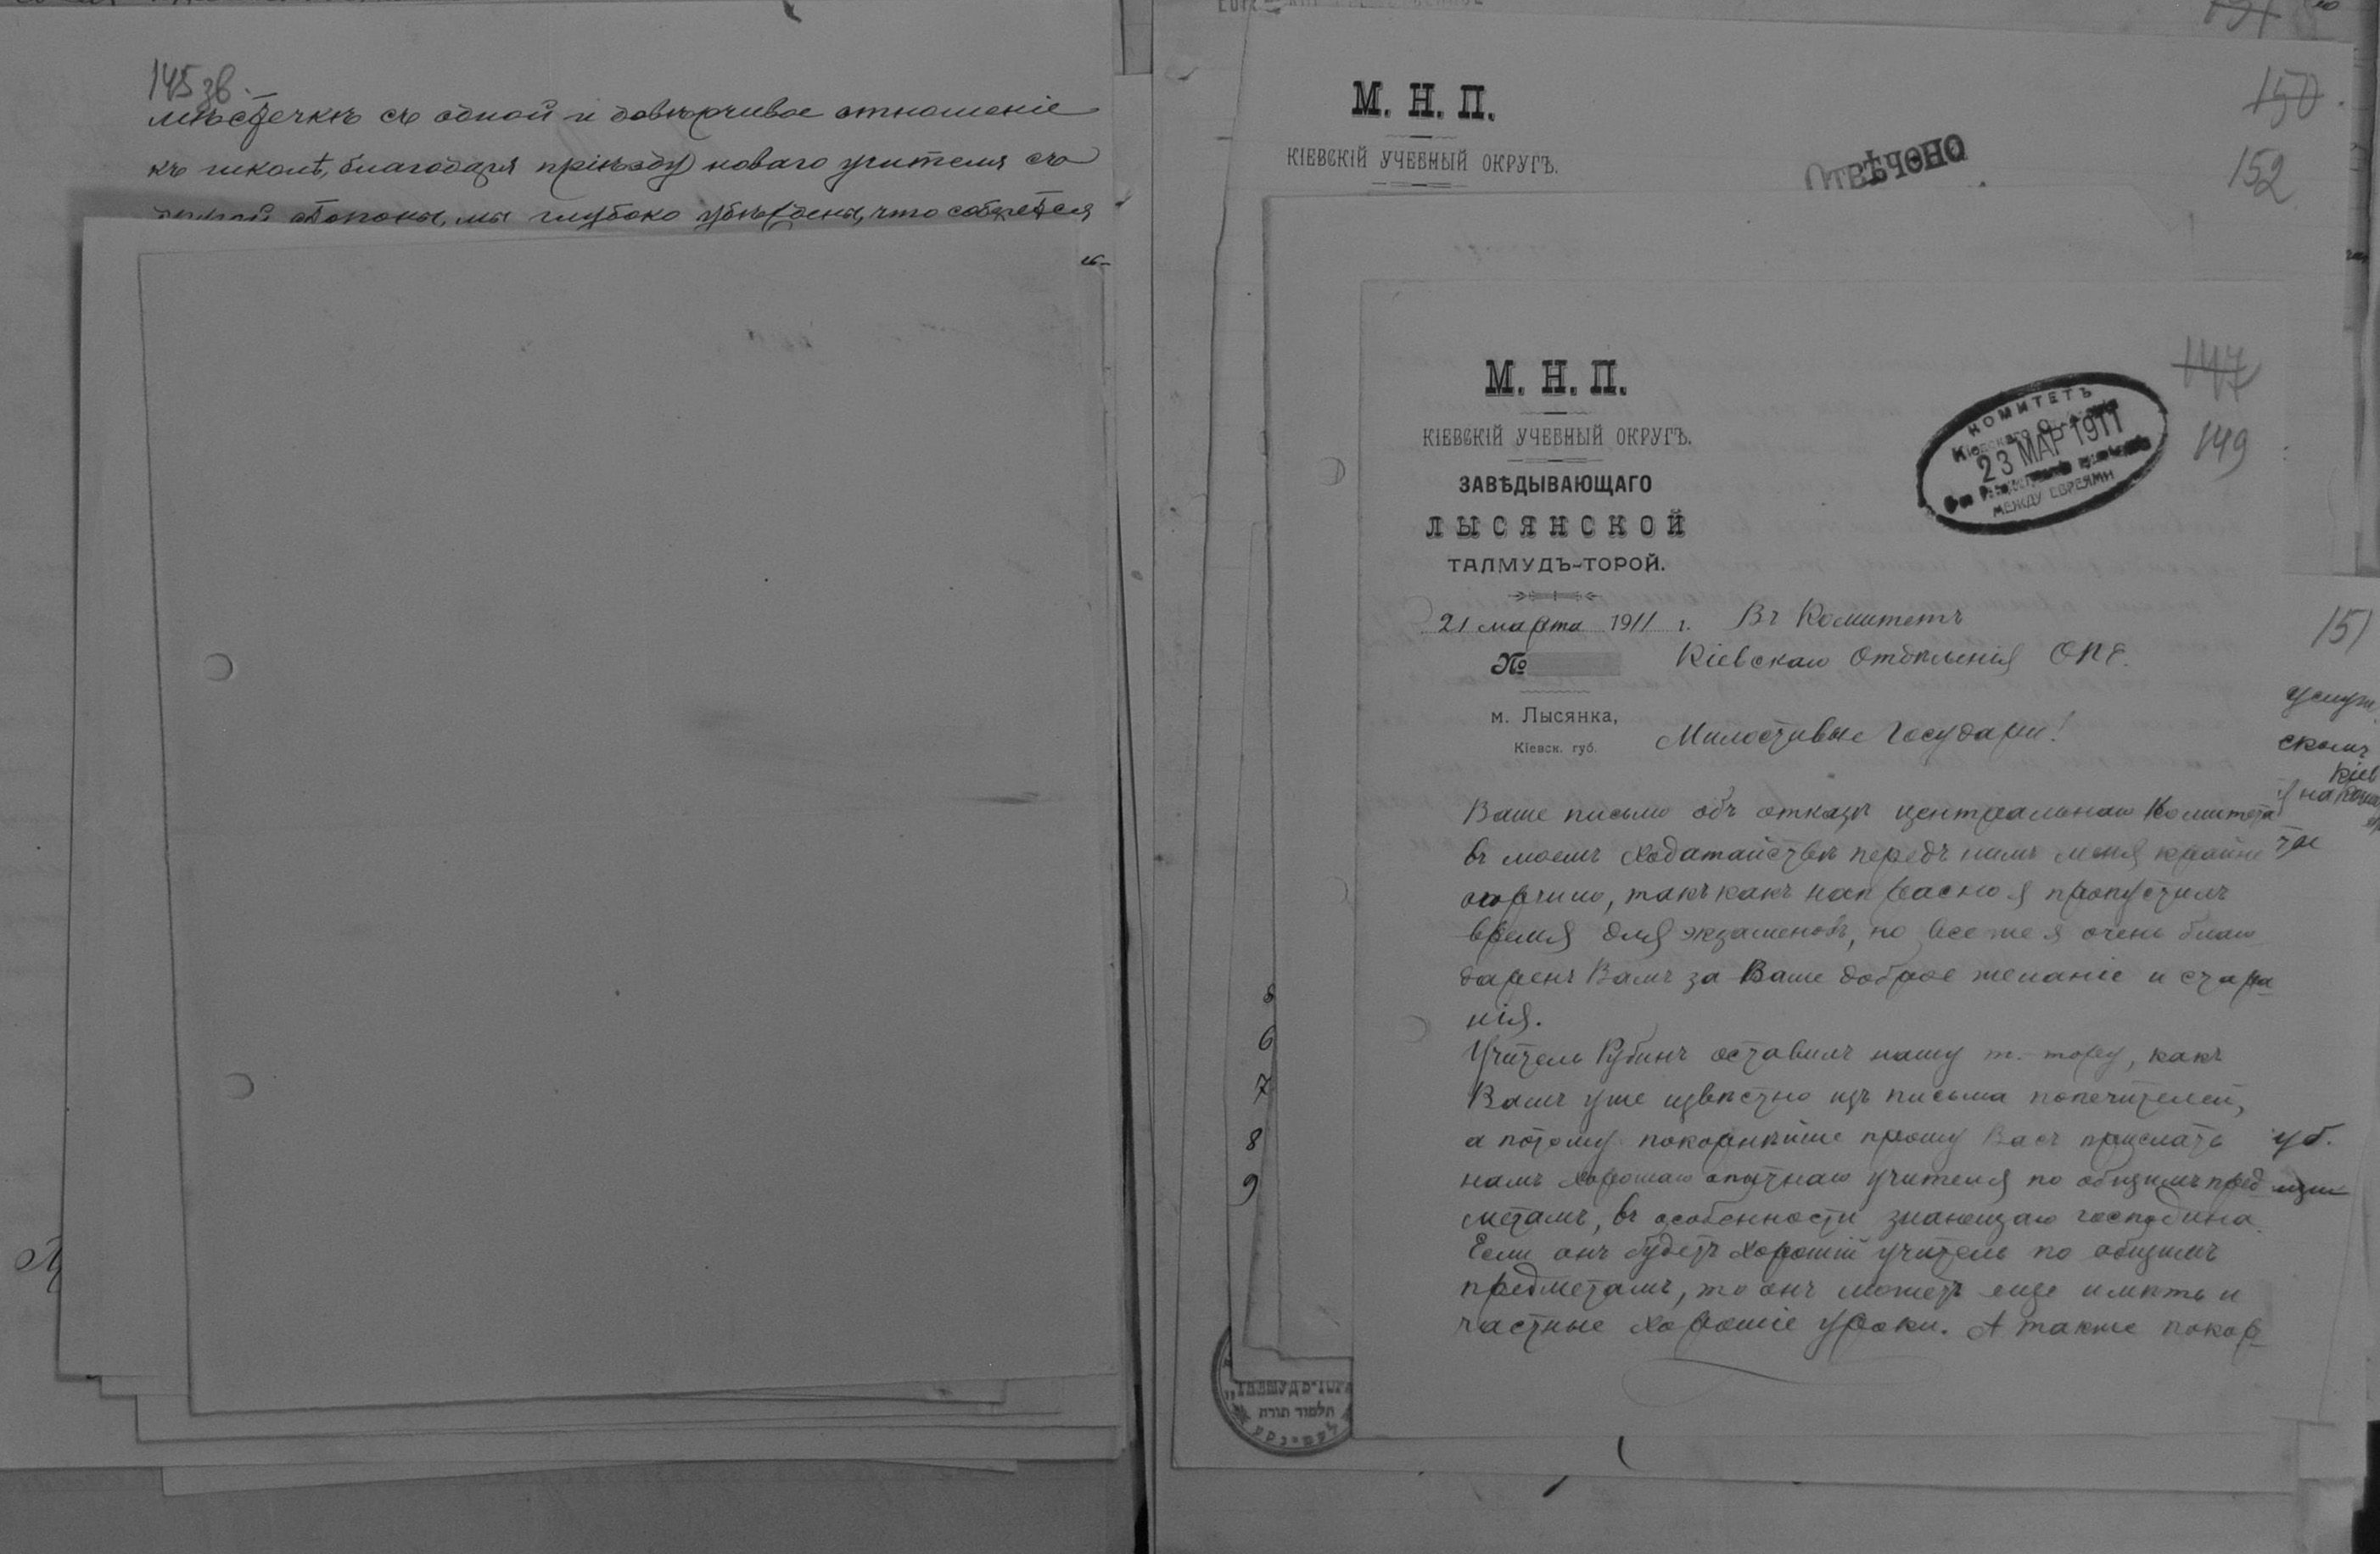 145 зв.
мѣстечкѣ съ одной и довѣрчивое отношеніе
къ школѣ, благодаря пріѣзду новаго учителя съ
другой стороны, мы глубоко убѣждены, что соберется
М. Н. П.
КІЕВСКІЙ УЧЕБНЫЙ ОКРУГЪ.
ОТВѢЧЕНО
150
152
М. Н. П.
КІЕВСКІЙ УЧЕБНЫЙ ОКРУГЪ.
ЗАВѢДЫВАЮЩАГО
ЛЫСЯНСКОЙ
ТАЛМУДЪ-ТОРОЙ.
КОМИТЕТЪ
Кіевскаго
23 МАР 1911
МЕЖДУ ЕВРЕЯМИ
147
149
21 марта 1911 г.
№
м. Лысянка,
Кіевск. губ.
Въ Комитетъ
Кіевскаго Отдѣленія ОПЕ.
Милостивые Государи!
Ваше письмо объ отказѣ центральнаго Комитета
въ моемъ ходатайствѣ передъ нимъ меня крайне
огорчило, такъ какъ напрасно я пропустилъ
время для экзаменовъ, но все же я очень благо
даренъ Вамъ за Ваше доброе желаніе и стара
нія.
Учитель Рубинъ оставилъ нашу т.-тору, какъ
Вамъ уже извѣстно изъ письма попечителей,
а потому покорнѣйше прошу Васъ прислать
намъ хорошаго опытнаго учителя по общимъ пред
метамъ, въ особенности знающаго господина.
Если онъ будетъ хорошій учитель по общимъ
предметамъ, то онъ можетъ еще имѣть и
частные хорошіе уроки. А также покор
151
скомъ
Кіев
уб.
6
7
8
9
תלמוד תורה